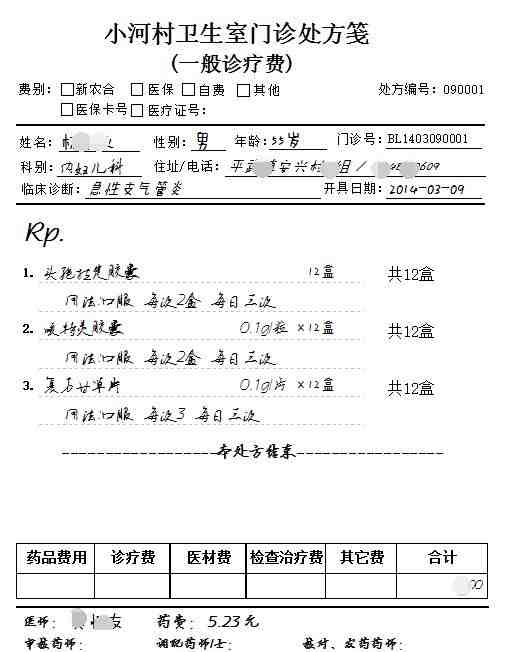 小河村卫生室门诊处方笺
(一般诊疗费)
费别: □新农合 □医保 □自费 □其他 处方编号: 090001
□医保卡号 □医疗证号:
姓名: 性别: 男 年龄: 55岁 门诊号: BL1403090001
科别: 内妇儿科 住址/电话: 平 镇安兴村 组 / 609
临床诊断: 急性支气管炎 开具日期: 2014-03-09
Rp.
1. 头孢拉定胶囊 12盒 共12盒
用法:口服 每次2盒 每日三次
2. 咳特灵胶囊 0.1g/粒 ×12盒 共12盒
用法:口服 每次2盒 每日三次
3. 复方甘草片 0.1g/片 ×12盒 共12盒
用法:口服 每次3 每日三次
--------------------本处方结束--------------------
药品费用 诊疗费 医材费 检查治疗费 其它费 合计
00
医师: 药费: 5.23元
审核药师: 调配药师/士: 核对、发药药师: